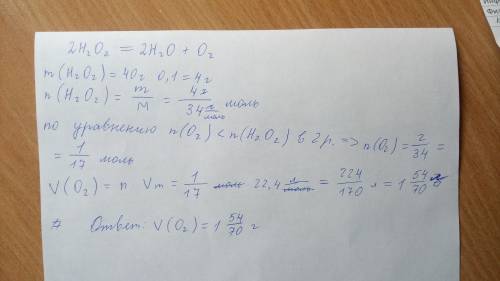 2H₂O₂ = 2H₂O + O₂
m(H₂O₂) = 40г 0,1 = 4г
n(H₂O₂) = m/M = 4г/34 г/моль моль
по уравнению n(O₂) < n(H₂O₂) в 2р. => n(O₂) = 2/34 =
= 1/17 моль
V(O₂) = n Vm = 1/17 моль 22,4 л/моль = 224/170 л = 1 54/70 л
Ответ: V(O₂) = 1 54/70 г